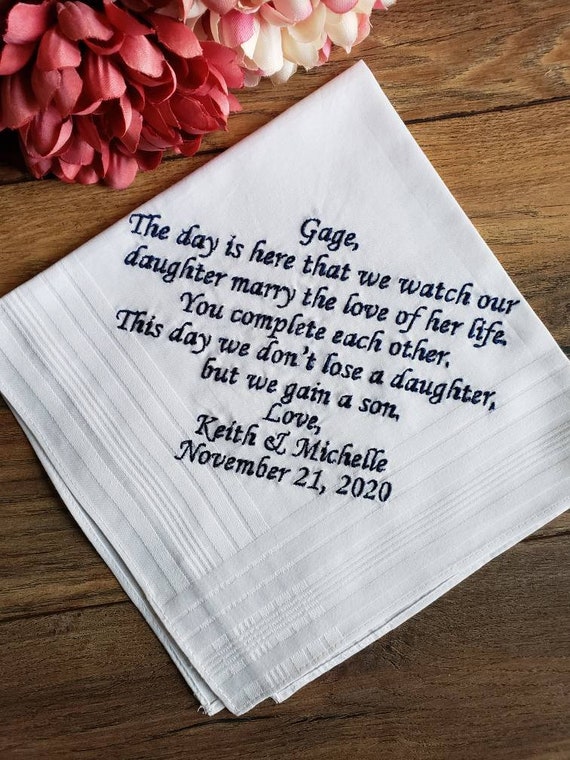 Gage,
The day is here that we watch our
daughter marry the love of her life.
You complete each other.
This day we don't lose a daughter,
but we gain a son.
Love,
Keith & Michelle
November 21, 2020